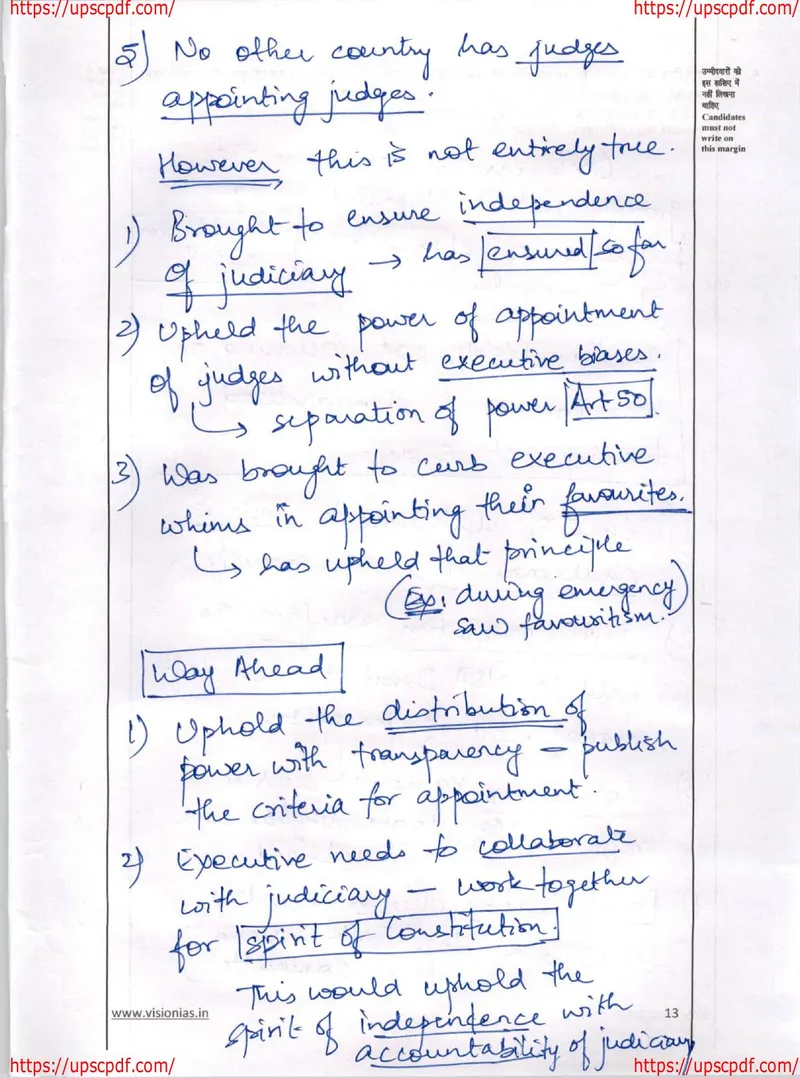 https://upscpdf.com/ https://upscpdf.com/
5) No other country has judges
appointing judges.
However, this is not entirely true.
1) Brought to ensure independence
of judiciary → has ensured so far
2) Upheld the power of appointment
of judges without executive biases.
↳ separation of power Art 50.
3) Was brought to curb executive
whims in appointing their favourites.
↳ has upheld that principle
(Eg: during emergency)
saw favouritism.
Way Ahead
1) Uphold the distribution of
power with transparency – publish
the criteria for appointment.
2) Executive needs to collaborate
with judiciary – work together
for spirit of Constitution.
This would uphold the
spirit of independence with
accountability of judiciary
उम्मीदवारों को
इस हाशिए में
नहीं लिखना
चाहिए
Candidates
must not
write on
this margin
www.visionias.in 13
https://upscpdf.com/ https://upscpdf.com/